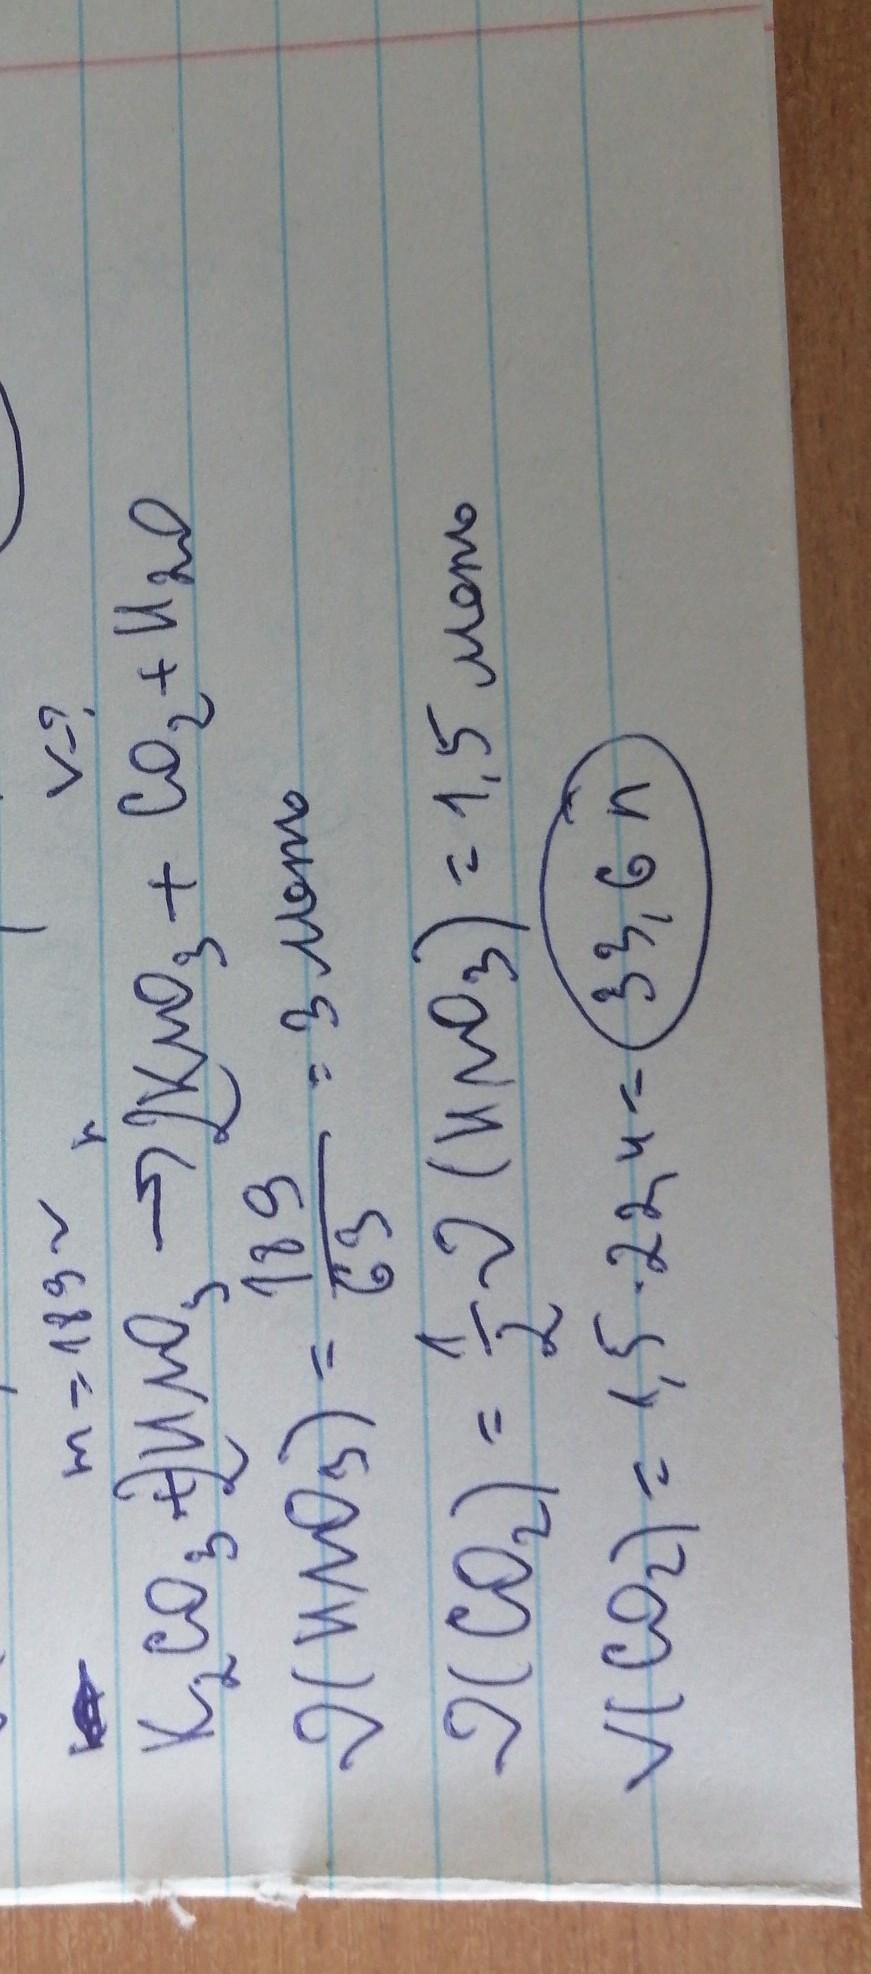 m = 189 г V-?
K₂CO₃ + 2HNO₃ → 2KNO₃ + CO₂ + H₂O
ν(HNO₃) = 189/63 = 3 моль
ν(CO₂) = 1/2 ν(HNO₃) = 1,5 моль
V(CO₂) = 1,5 · 22,4 = 33,6 л